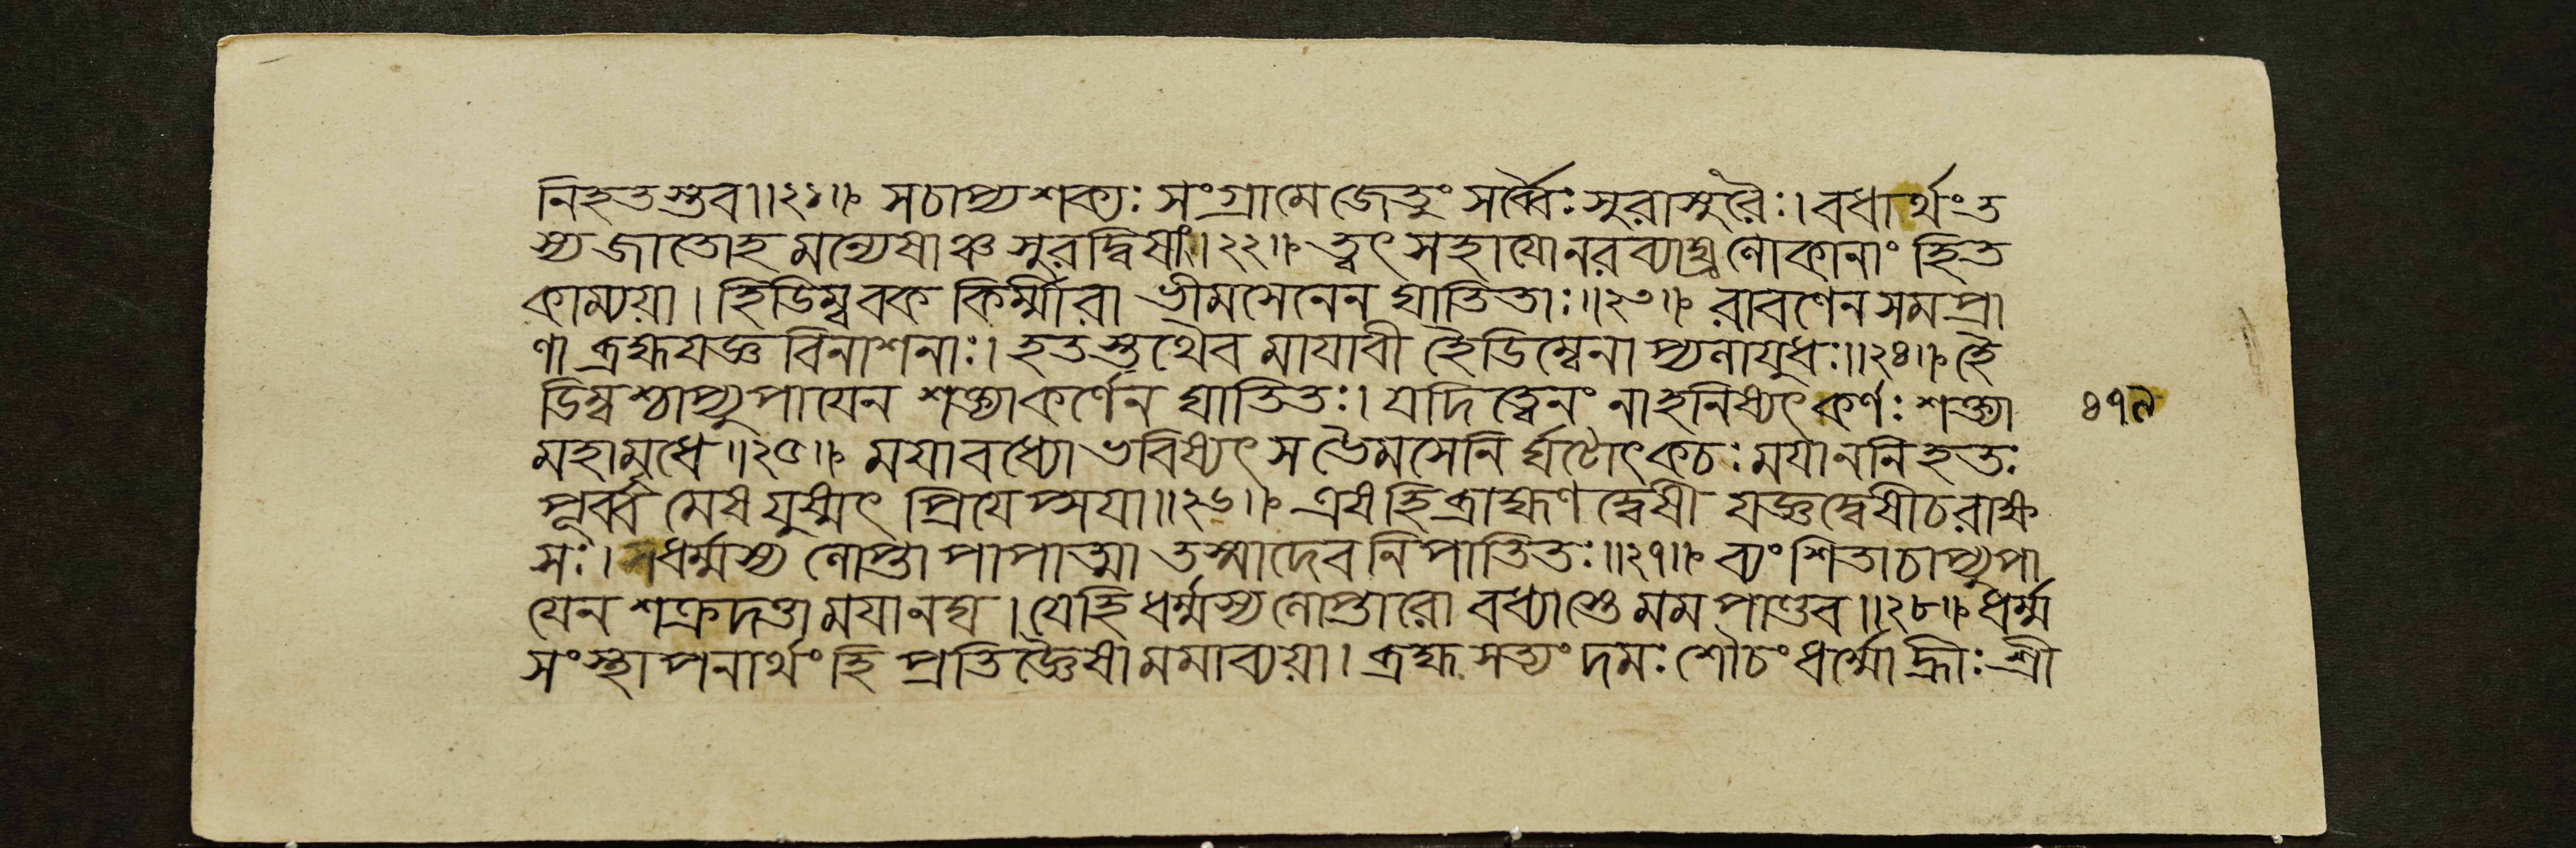 নিহতস্তব॥২১॥ সচাপ্যশক্যঃ সংগ্রামে জেতুং সর্ব্বৈঃ সুরাসুরৈঃ। বধার্থং ত
স্য জাতোহমন্যেষাঞ্চ সুরদ্বিষাং॥২২॥ ত্বৎ সহাযোনরব্যাঘ্র লোকানাং হিত
কাম্যয়া। হিডিম্ববক কির্ম্মীরা ভীমসেনেন ঘাতিতাঃ॥২৩॥ রাবণেন সমপ্রা
ণা ব্রহ্মযজ্ঞ বিনাশনাঃ। হতস্তথৈব মাযাবী হৈডিম্বেনাপ্যলাযুধঃ॥২৪॥ হৈ
ডিম্বশ্চাপ্যুপাযেন শক্ত্যাকর্ণেন ঘাতিতঃ। যদি হ্বেনং নাহনিষ্যৎ কর্ণঃ শক্ত্যা
মহামৃধে॥২৫॥ মযাবধ্যো ভবিষ্যৎ স ভৈমসেনি র্ঘটোৎকচঃ মযাননিহতঃ
পূর্ব্ব মেষ যুষ্মৎ প্রিযেপ্সযা॥২৬॥ এষহি ব্রাহ্মণদ্বেষী যজ্ঞদ্বেষীচরাক্ষ
সঃ। ধর্ম্মস্য লোপ্তা পাপাত্মা তস্মাদেব নিপাতিতঃ॥২৭॥ ব্যংশিতাচাপ্যুপা
যেন শক্রদত্তা মযানঘ। যেহি ধর্ম্মস্য লোপ্তারো বধ্যাস্তে মম পাণ্ডব॥২৮॥ ধর্ম্ম
সংস্থাপনার্থং হি প্রতিজ্ঞৈষা মমাব্যয়া। ব্রহ্ম সত্যং দমঃ শৌচং ধর্ম্মো হ্রীঃ শ্রী